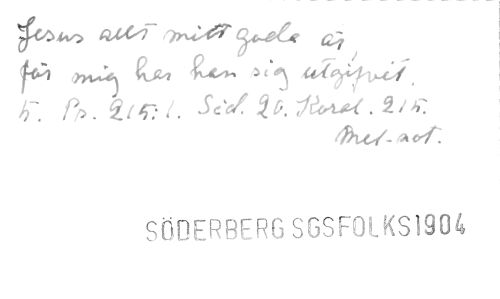 Jesus allt mitt goda är,
för mig har han sig utgifvit.
5. Ps. 215:1. Söd. 20. Koral. 215.
Mel-not.
SÖDERBERG SGSFOLKS1904